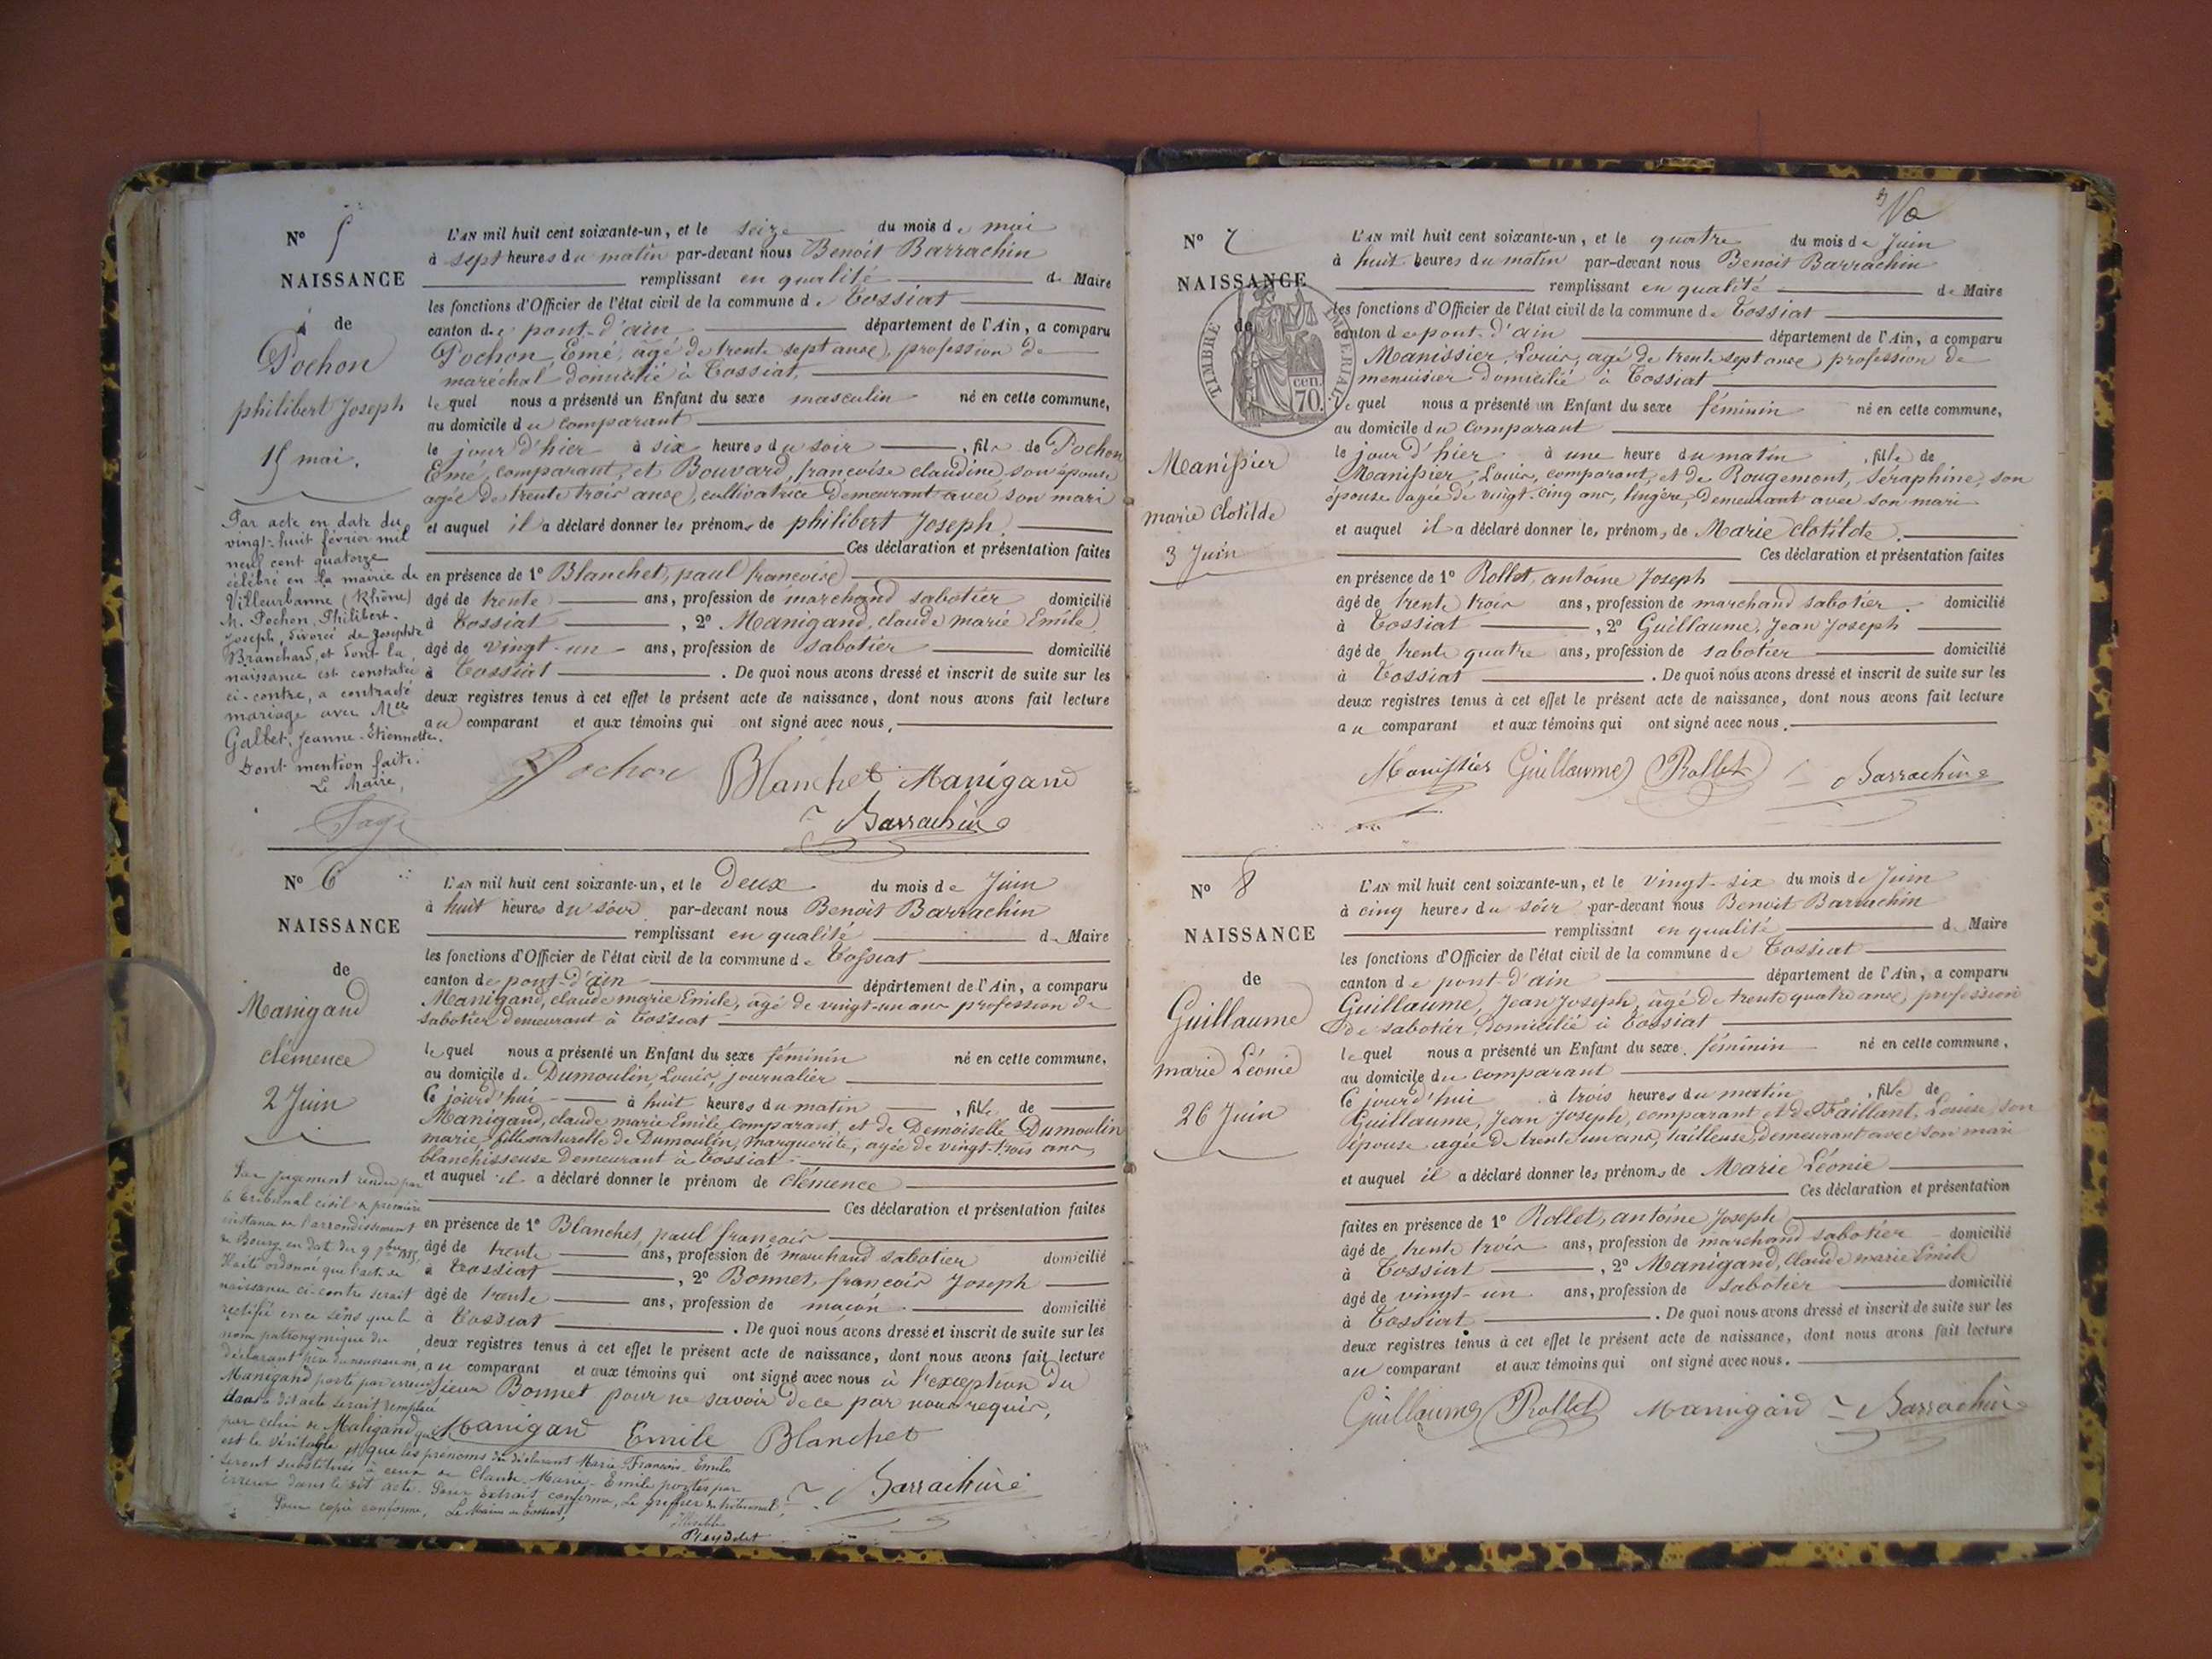 N° 5
NAISSANCE
de
Pochon
philibert Joseph
15 mai.
Par acte en date du
vingt-huit février mil
neuf cent quatorze
célébré en la mairie de
Villeurbanne (Rhône)
M. Pochon, Philibert-
Joseph, divorcé de Josephte
Branchard, et dont la
naissance est constatée
ci-contre, a contracté
mariage avec Mlle
Galbet, Jeanne-Etiennette.
Dont mention faite.
Le Maire,
L'AN mil huit cent soixante-un, et le seize du mois de mai
à sept heures du matin par-devant nous Benoit Barrachin
remplissant en qualité de Maire
les fonctions d'Officier de l'état civil de la commune de Tossiat
canton de pont-d'ain département de l'Ain, a comparu
Pochon Emé, âgé de trente sept ans, profession de
maréchal domicilié à Tossiat,
lequel nous a présenté un Enfant du sexe masculin né en cette commune,
au domicile du comparant
le jour d'hier à six heures du soir, fils de Pochon
Emé, comparant, et Bouvard, francoise claudine, son épouse
agée de trente trois ans, cultivatrice demeurant avec son mari
et auquel il a déclaré donner les prénoms de philibert Joseph.
Ces déclaration et présentation faites
en présence de 1° Blanchet, paul francoise
âgé de trente ans, profession de marchand sabotier domicilié
à Tossiat, 2° Manigand, claude marie Emile
âgé de vingt-un ans, profession de sabotier domicilié
à Tossiat. De quoi nous avons dressé et inscrit de suite sur les
deux registres tenus à cet effet le présent acte de naissance, dont nous avons fait lecture
au comparant et aux témoins qui ont signé avec nous.
Pochon Blanchet Manigand
Barrachin
N° 6
NAISSANCE
de
Manigand
clémence
2 Juin
Par jugement rendu par
le tribunal civil de première
instance de l'arrondissement
de Bourg en date du 9
il a été ordonné que l'acte de
naissance ci-contre serait
rectifié en ce sens que le
nom patronymique du
déclarant père
Manigand porté par erreur
dans le dit acte serait remplacé
par celui de Maligand qui
est le véritable et que les prénoms du déclarant Marie-François-Emile
seront substitués à ceux de Claude-Marie-Emile portés par
erreur dans le dit acte. Pour extrait conforme, Le greffier du tribunal,
Pour copie conforme, Le Maire de Tossiat,
L'AN mil huit cent soixante-un, et le deux du mois de Juin
à huit heures du soir par-devant nous Benoit Barrachin
remplissant en qualité de Maire
les fonctions d'Officier de l'état civil de la commune de Tossiat
canton de pont-d'ain département de l'Ain, a comparu
Manigand, claude marie Emile, âgé de vingt-un ans profession de
sabotier demeurant à Tossiat
lequel nous a présenté un Enfant du sexe féminin né en cette commune,
au domicile de Dumoulin, Louis, journalier
Ce jourd'hui à huit heures du matin, fille de
Manigand, claude marie Emile comparant, et de Demoiselle Dumoulin
marie, fille naturelle de Dumoulin, Marguerite, agée de vingt-trois ans,
blanchisseuse demeurant à Tossiat
et auquel il a déclaré donner le prénom de clémence
Ces déclaration et présentation faites
en présence de 1° Blanchet, paul francois
âgé de trente ans, profession de marchand sabotier domicilié
à Tossiat, 2° Bonnet, francois Joseph
âgé de trente ans, profession de maçon domicilié
à Tossiat. De quoi nous avons dressé et inscrit de suite sur les
deux registres tenus à cet effet le présent acte de naissance, dont nous avons fait lecture
au comparant et aux témoins qui ont signé avec nous à l'exception du
sieur Bonnet pour ne savoir de ce par nous requis,
Manigand Emile Blanchet
Barrachin
N° 7
NAISSANCE
de
TIMBRE IMPERIAL
70 cen.
Manissier
marie clotilde
3 Juin
L'AN mil huit cent soixante-un, et le quatre du mois de Juin
à huit heures du matin par-devant nous Benoit Barrachin
remplissant en qualité de Maire
les fonctions d'Officier de l'état civil de la commune de Tossiat
canton de pont-d'ain département de l'Ain, a comparu
Manissier, Louis, agé de trente sept ans, profession de
menuisier domicilié à Tossiat
lequel nous a présenté un Enfant du sexe féminin né en cette commune,
au domicile du comparant
le jour d'hier à une heure du matin, fille de
Manissier, Louis, comparant, et de Rougemont, Séraphine, son
épouse agée de vingt-cinq ans, lingère, demeurant avec son mari
et auquel il a déclaré donner les prénoms de Marie clotilde.
Ces déclaration et présentation faites
en présence de 1° Rollet, antoine Joseph
âgé de trente trois ans, profession de marchand sabotier. domicilié
à Tossiat, 2° Guillaume, Jean Joseph
âgé de trente quatre ans, profession de sabotier domicilié
à Tossiat. De quoi nous avons dressé et inscrit de suite sur les
deux registres tenus à cet effet le présent acte de naissance, dont nous avons fait lecture
au comparant et aux témoins qui ont signé avec nous.
Manissier Guillaume Rollet Barrachin
N° 8
NAISSANCE
de
Guillaume
marie Léonie
26 Juin
L'AN mil huit cent soixante-un, et le vingt-six du mois de Juin
à cinq heures du soir par-devant nous Benoit Barrachin
remplissant en qualité de Maire
les fonctions d'Officier de l'état civil de la commune de Tossiat
canton de pont-d'ain département de l'Ain, a comparu
Guillaume, Jean Joseph, âgé de trente quatre ans, profession
de sabotier, domicilié à Tossiat
lequel nous a présenté un Enfant du sexe féminin né en cette commune,
au domicile du comparant
Ce jourd'hui à trois heures du matin, fille de
Guillaume, Jean Joseph, comparant et de Faillant, Louise, son
épouse agée de trente un ans, tailleuse, demeurant avec son mari
et auquel il a déclaré donner les prénoms de Marie Léonie
Ces déclaration et présentation
faites en présence de 1° Rollet, antoine Joseph
âgé de trente trois ans, profession de marchand sabotier domicilié
à Tossiat, 2° Manigand, claude marie Emile
âgé de vingt-un ans, profession de sabotier domicilié
à Tossiat. De quoi nous avons dressé et inscrit de suite sur les
deux registres tenus à cet effet le présent acte de naissance, dont nous avons fait lecture
au comparant et aux témoins qui ont signé avec nous.
Guillaume Rollet Manigand Barrachin